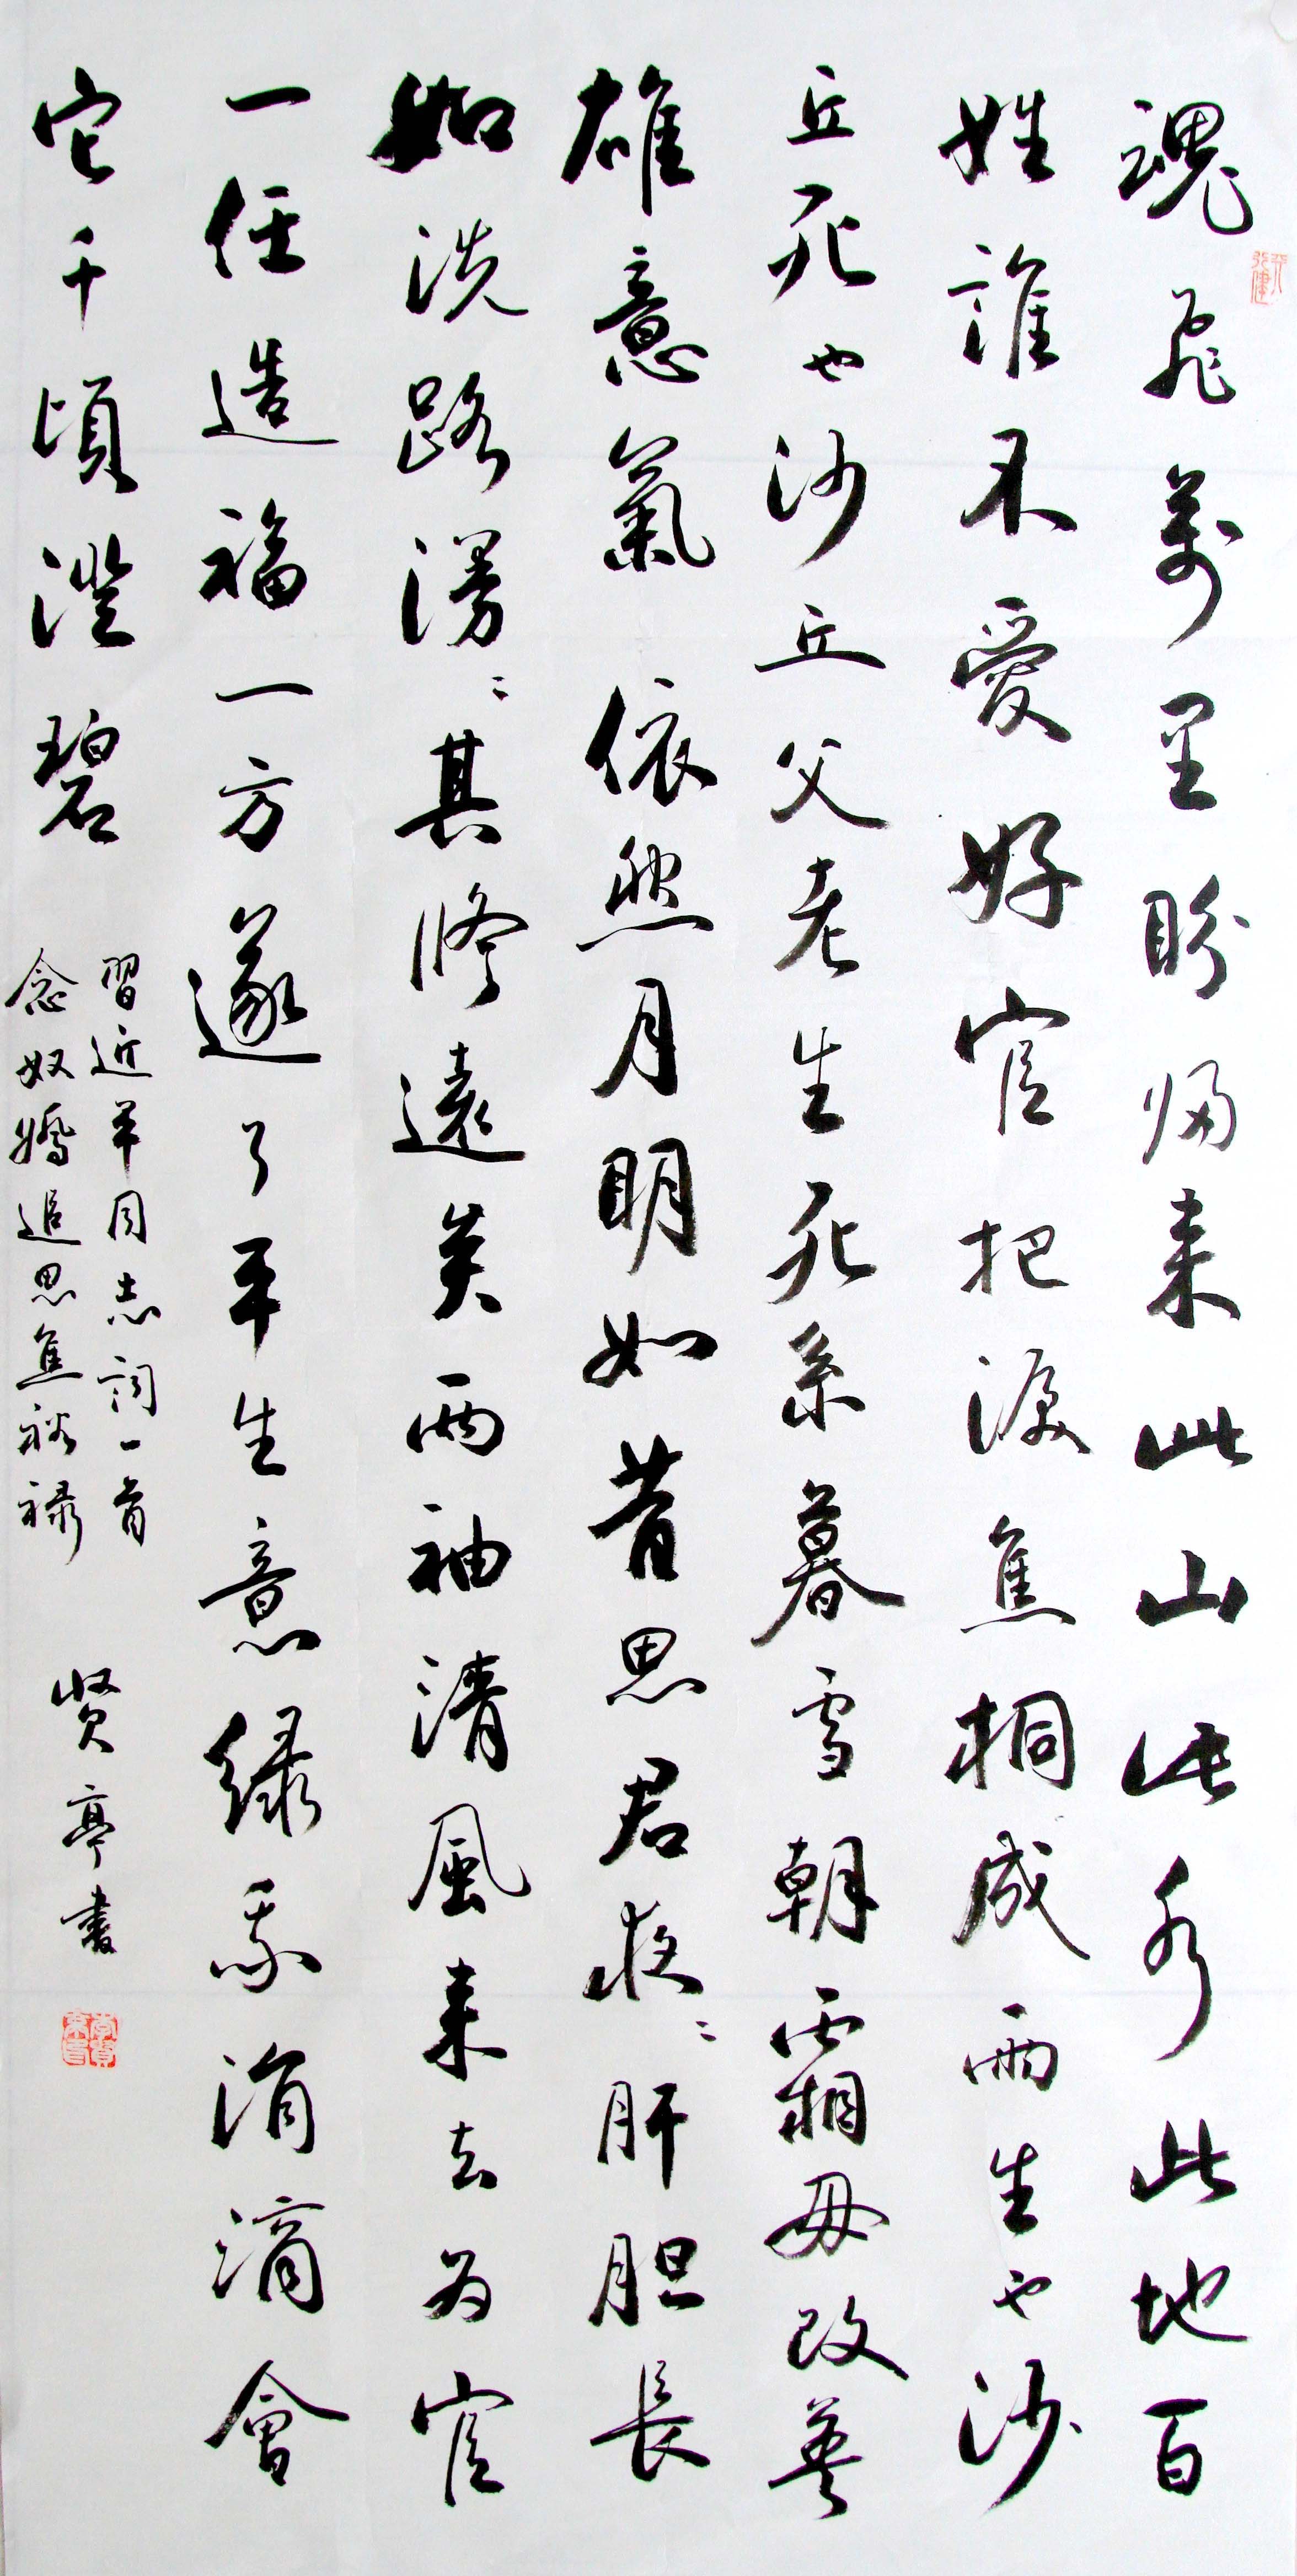 魂飛萬里盼归来此山此水此地百
姓誰不愛好官把淚焦桐成雨生也沙
丘死也沙丘父老生死系暮雪朝霜毋改英
雄意氣依然月明如昔思君夜々肝胆長
如洗路漫々其修遠矣兩袖清風来去为官
一任造福一方遂了平生意緑我涓滴會
它千頃澄碧
習近平同志詞一首
念奴嬌追思焦裕禄
贤亭書